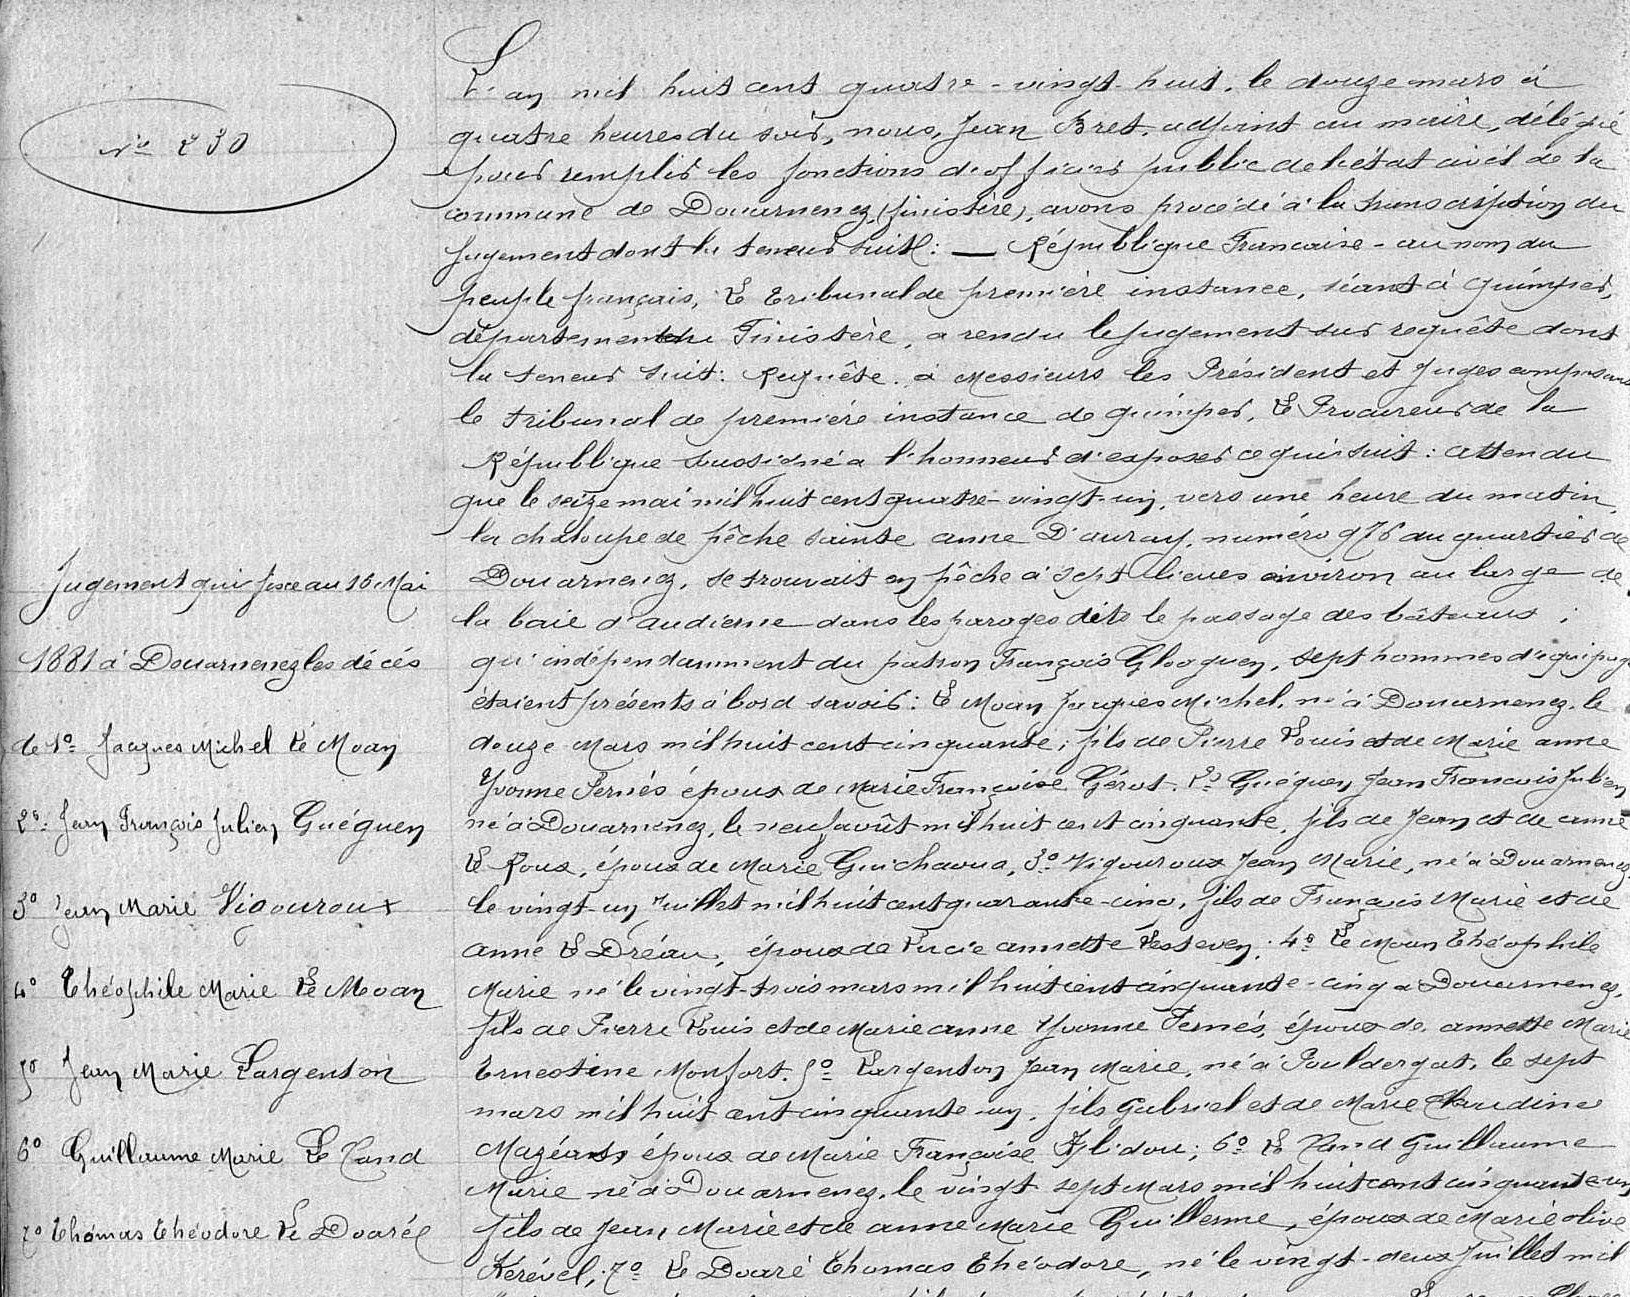 No 230
Jugement qui fixe au 16 Mai
1881 à Douarnenez les décès
de 1o Jacques Michel Le Moan
2o: Jean François Julien Guéguen
3o Jean Marie Vigouroux
4o Théophile Marie Le Moan
5o Jean Marie Largenton
6o Guillaume Marie Le Cand
7o Thomas Théodore Le Doaré
L'an mil huit cent quatre-vingt-huit, le douze mars à
quatre heures du soir, nous, Jean Bret, adjoint au maire, délégué
pour remplir les fonctions d'officier public de l'état civil de la
commune de Douarnenez, (finistère), avons procédé à la transcription du
jugement dont la teneur suit: — République Francaise - au nom du
peuple français, Le Tribunal de première instance, séant à Quimper,
département du Finistère, a rendu le jugement sur requête dont
la teneur suit: Requête. à Messieurs les Président et Juges composant
le tribunal de première instance de quimper, Le Procureur de la
République soussigné a l'honneur d'exposer ce qui suit: attendu
que le seize mai mil huit cent quatre-vingt-un, vers une heure du matin,
la chaloupe de pêche sainte anne D'auray, numéro 976 au quartier de
Douarnenez, se trouvait en pêche à sept lieues environ au large de
la baie d'audierne dans les parages dits le passage des bâteaux;
qu'indépendamment du patron François Gloaguen, sept hommes d'équipage
étaient présents à bord savoir: Le Moan Jacques Michel, né à Douarnenez, le
douze Mars mil huit cent cinquante; fils de Pierre Louis et de Marie anne
Yvonne Pernès époux de Marie Françoise Gérot. 2o Guéguen Jean Francois Julien
né à Douarnenez, le neuf août mil huit cent cinquante, fils de Jean et de anne
Le Roux, époux de Marie Guichaoua, 3o Vigouroux Jean Marie, né à Douarnenez,
le vingt-un Juillet mil huit cent quarante-cinq, fils de François Marie et de
anne Le Dréau, époux de Lucie annette Lesteven; 4o Le Moan Théophile
Marie né le vingt-trois mars mil huit cent cinquante-cinq à Douarnenez,
fils de Pierre Louis et de Marie anne Yvonne Pernés, époux de annette Marie
Ernestine Monfort. 5o Largenton Jean Marie, né à Pouldergat, le sept
mars mil huit cent cinquante-un, fils Gabriel et de Marie Claudine
époux de Marie Françoise 6o Le Cand Guillaume
Marie né à Douarnenez, le vingt sept Mars mil huit cent cinquante-un
fils de Jean Marie et de anne Marie Guillerme, époux de Marie olive
Kérével; 7o Le Doaré Thomas Théodore, né le vingt-deux Juillet mil